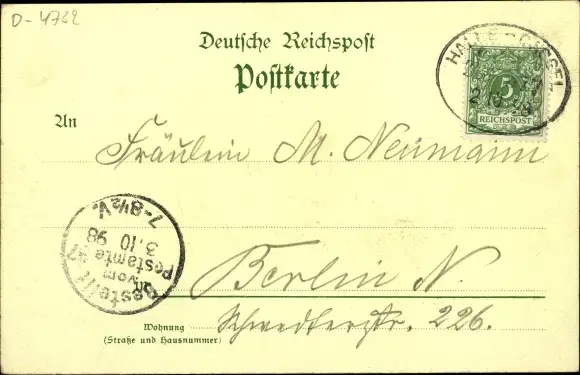 D-4732
Deutsche Reichspost
Postkarte
HALLE - CASSEL
2 10 98
5
REICHSPOST
An
Fräulein M. Neumann
Bestellt
vom
Postamte 37
3.10 98
7-8½V.
Berlin N.
Wohnung
(Straße und Hausnummer)
Schwedterstr. 226.